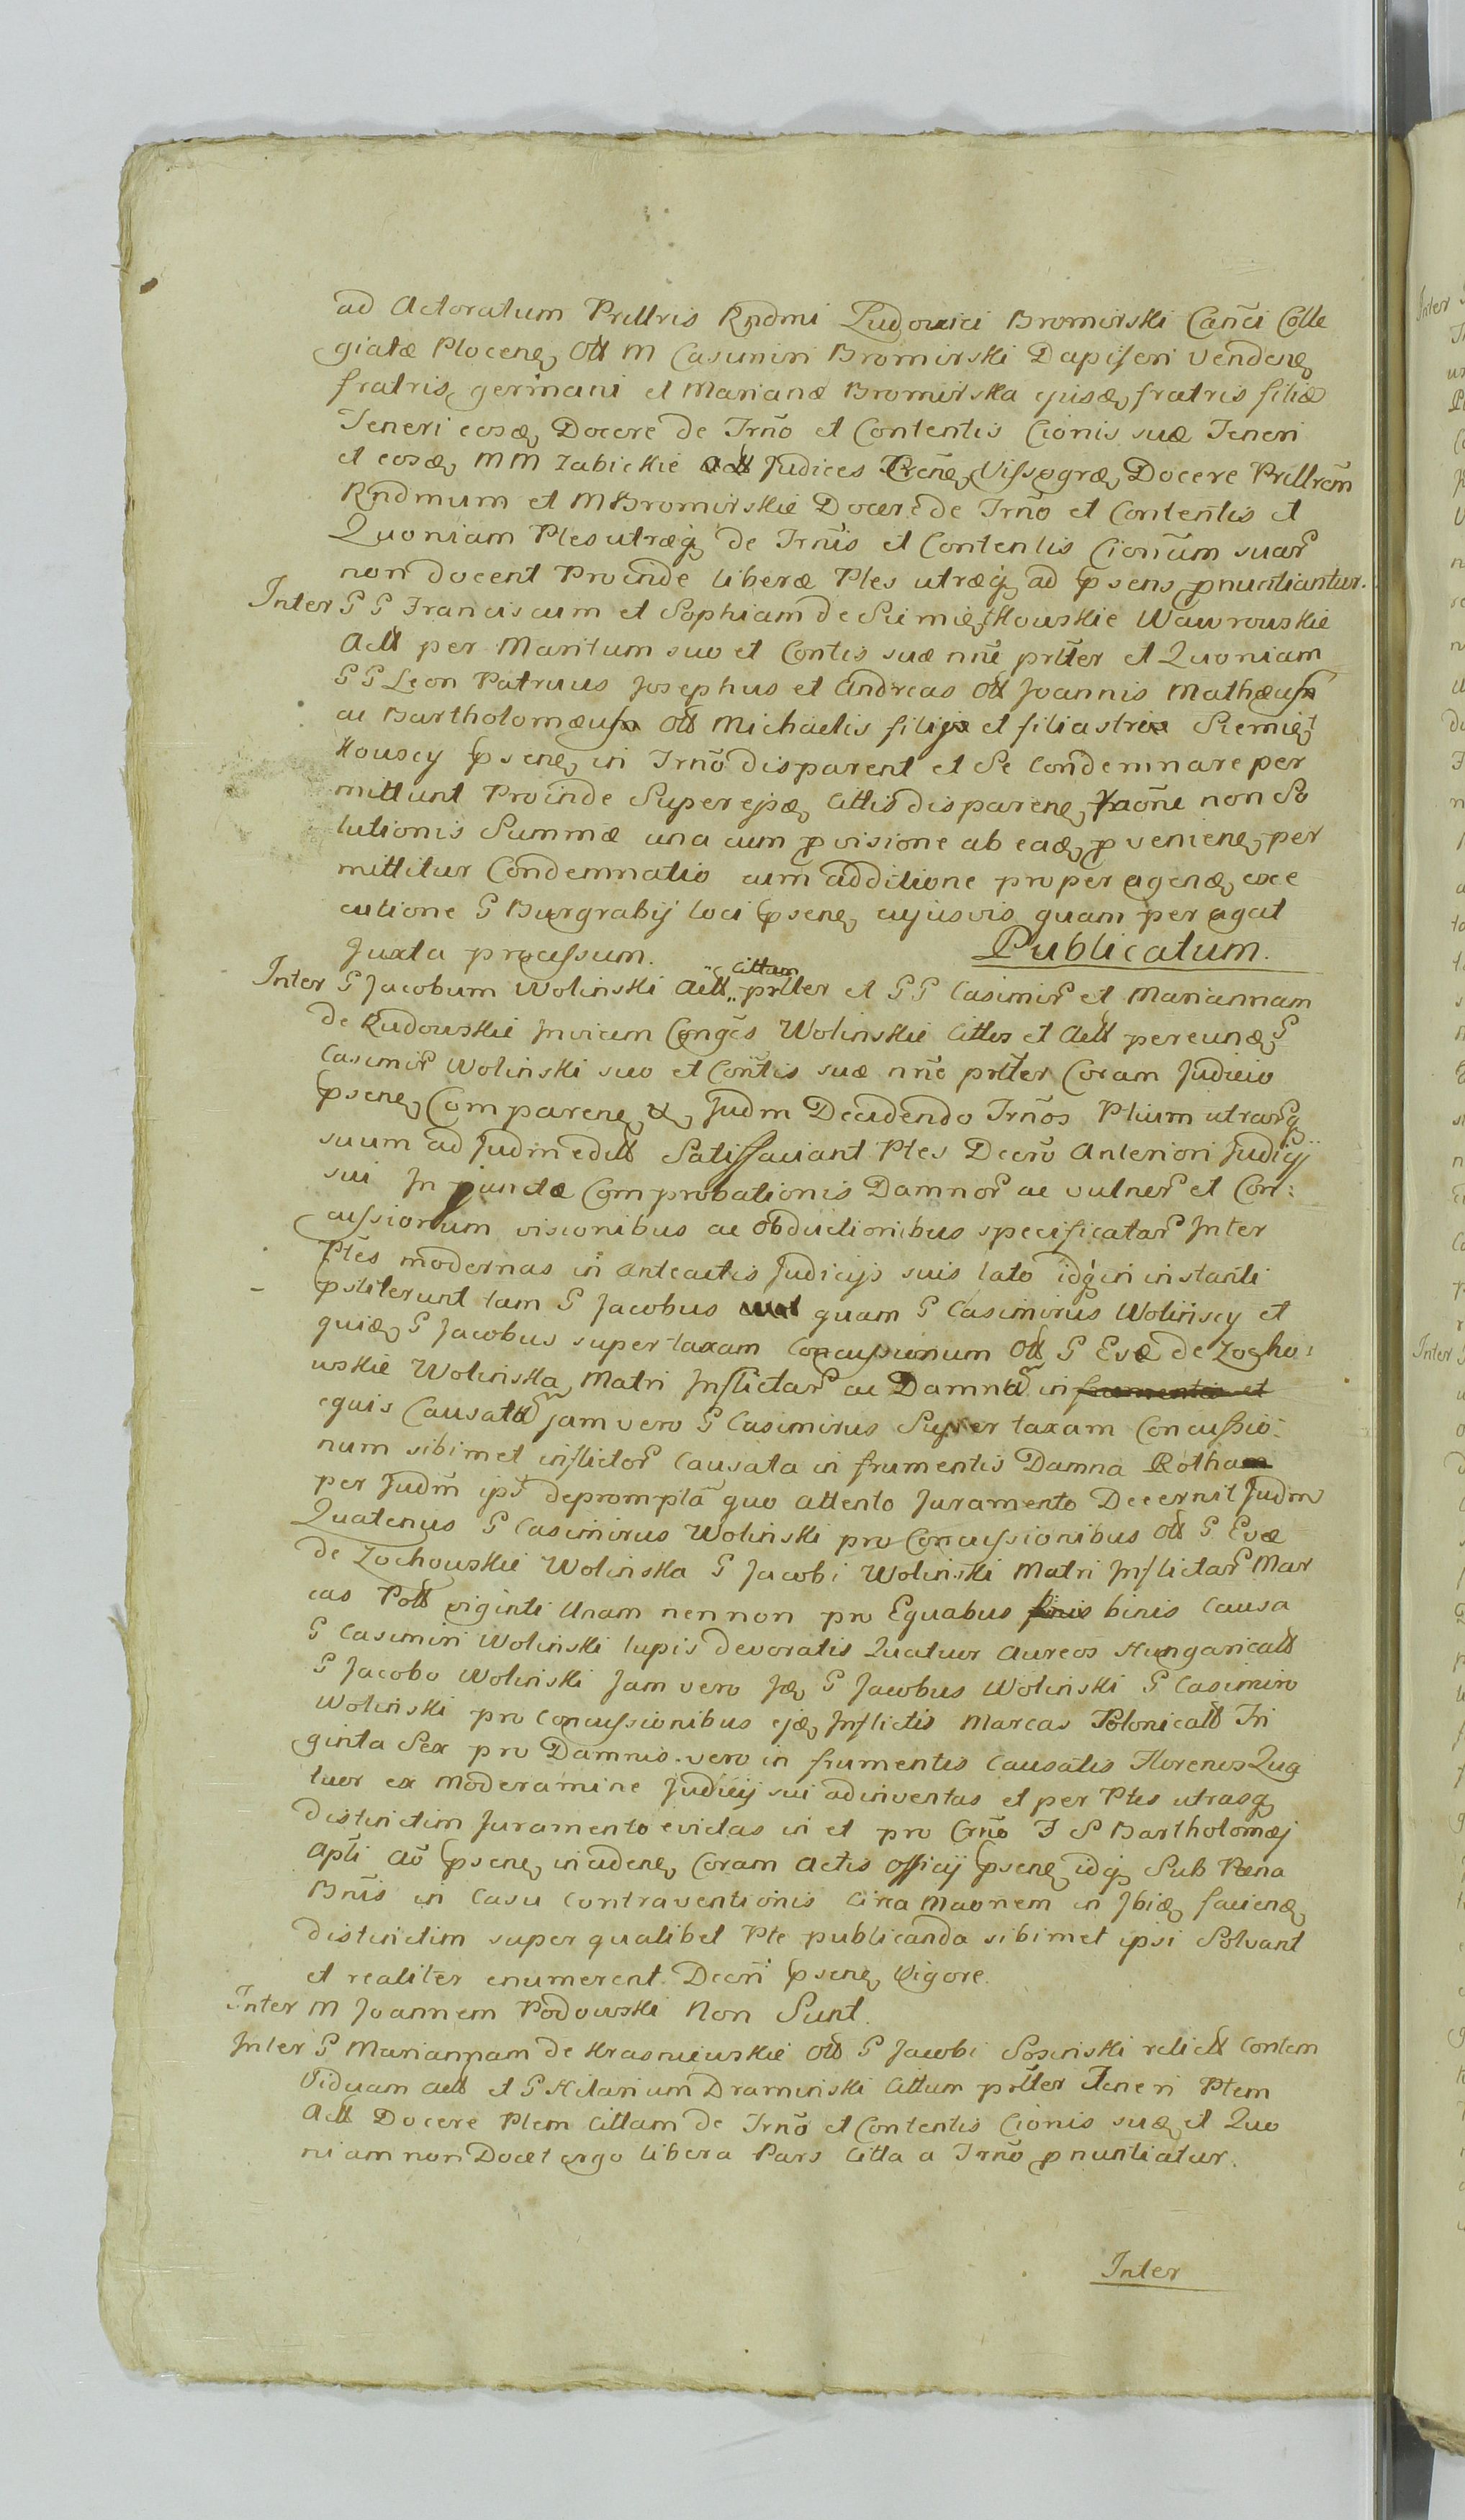 ad Actoratum Prllris Rndmi Ludovici Bromirski Canci Colle
giatæ Plocenę Ott M Casimiri Bromirski Dapiferi Vendenę
fratris germani et Marianæ Bromirska ejusdę fratris filiæ
Teneri eosdę Docere de Trño et Contentis Cionis suæ Teneri
et eosdę MM Zabickie Act Judices Vissogrę Docere Prllrem
Rndmum et M Bromirskie Docere de Trño et Contentis et
Quoniam Ptes utræq de Trñis et Contentis Cionum suar
non docent Proinde liberæ Ptes utræq ad psens pnuntiantur.
Inter G G Franciscum et Sophiam de Siemiętkowskie Wawrowskie
Act per Maritum suo et Contis suæ nne prtter et Quoniam
G G Leon Patruus Josephus et Andreas Ott Joannis Mathæus
ac Bartholomæus Ott Michaelis filij et filiastri Siemięt
kowscy psenę in Trño disparent et Se Condemnare per
mittunt Proinde Super ejsdę Cittis disparenę raõne non So
lutionis Summæ una cum pvisione ab eadę pvenienę per
mittitur Condemnatio cum additione pro peragendę exe
cutione G Burgrabij loci psenę cujusvis quam peragat
Juxta processum. Publicatum.
Inter G Jacobum Wolinski Act Cittum prtter et G G Casimir et Mariannam
de Rudowskie Invicem Congēs Wolinskie Cittos et Act per eundę G
Casimir Wolinski suo et Contis suæ nne prtter Coram Judicio
psenę Comparenę & Judm Decidendo Trños Ptium utrarq
suum ad Judm edtt Satisfaciant Ptes Decro Anteriori Judicij
sui Injunctæ Comprobationis Damnor ac vulner et Con:
cussionum visionibus ac obductionibus specificatar Inter
Ptes modernas in anteactis Judicijs suis lato idq in instanti
pstiterunt tam G Jacobus quam G Casimirus Wolinscy et
quidę G Jacobus super taxam Concussionum Ott G Evæ de Zocho:
wskie Wolinska Matri Inflictar ac Damna in frumentis et
equis Causata jam vero G Casimirus Super taxam Concussio:
num sibimet inflictor Causata in frumentis Damna Rotha
per Judm ips deprompta quo attento Juramento Decernit Judm
Quatenus G Casimirus Wolinski pro Concussionibus Ott G Evæ
de Zochowskie Wolinska G Jacobi Wolinski Matri Inflictar Mar
cas Pott viginti Unam nennon pro Equabus binis Causa
G Casimiri Wolinski lupis devoratis Quatuor Aureos Hungaricatt
G Jacobo Wolinski Jam vero Idę G Jacobus Wolinski G Casimiro
Wolinski pro Concussionibus ejdę Inflictis Marcas Polonicatt Tri
ginta Sex pro Damnis vero in frumentis Causatis Florenos Qua
tuor ex Moderamine Judicij sui adinventas et per Ptes utrasq
distinctim Juramento evictas in et pro Crño F S Bartholomæj
Apti Aõ psenę incidenę Coram Actis Officij psenę idq Sub Pæna
Bnis in Casu Contraventionis Circa Maonem in Ibidę faciendę
distinctim super qualibet Pte publicanda sibimet ipsi Solvant
et realiter enumerent Decri psenę Vigore.
Inter M Joannem Podowski Non Sunt.
Inter G Mariannam de Krasniewskie Ott G Jacobi Sosinski relictt Contem
Viduam Act et G Hilarium Draminski Cittum prtter Teneri Ptem
Act Docere Ptem Cittam de Trño et Contentis Cionis suæ et Quo
niam non Docet ergo libera Pars Citta a Trño pnuntiatur.
Inter